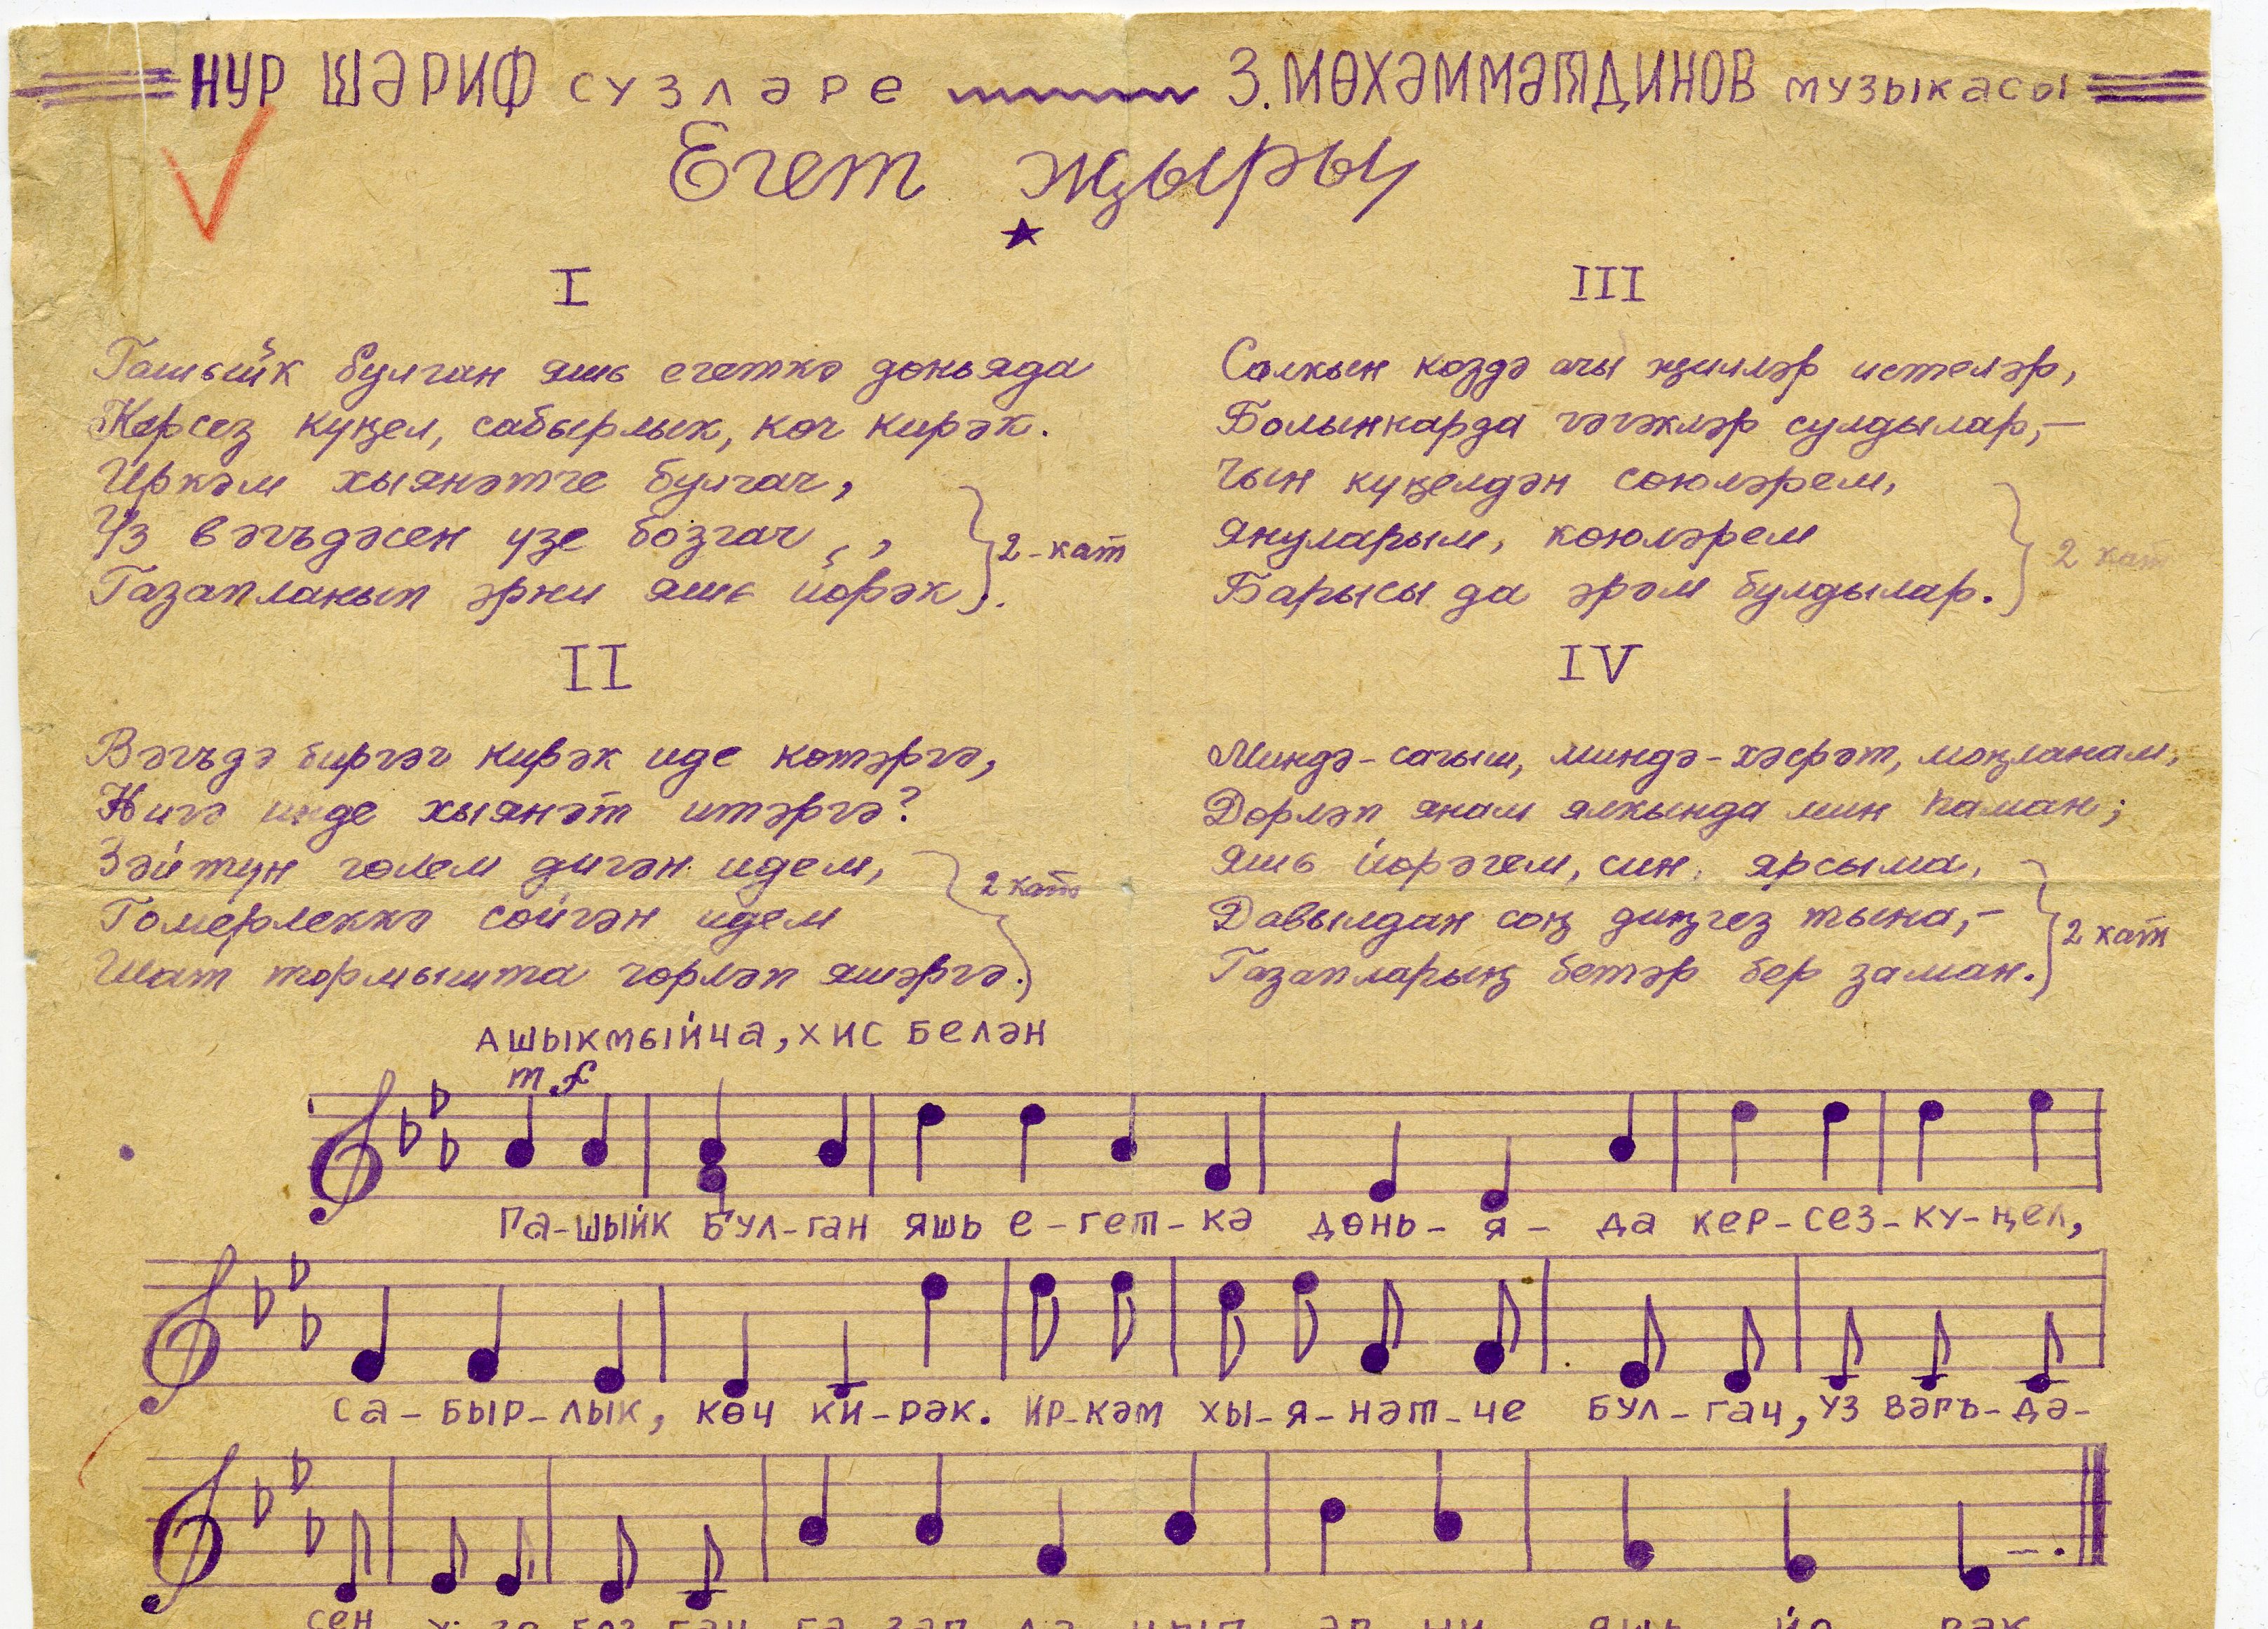 НУР ШӘРИФ сүзләре З. МӨХӘММӘТДИНОВ музыкасы
Егет җыры
I
Гашыйк булган яшь егеткә дөньяда
Керсез күңел, сабырлык, көч кирәк.
Иркәм хыянәтче булгач,
Үз вәгъдәсен үзе бозгач,
Газапланып әрни яшь йөрәк.
2-кат
II
Вәгъдә биргәч кирәк иде көтәргә,
Нигә инде хыянәт итәргә?
Зәйтүн гөлем дигән идем,
Гомерлеккә сөйгән идем
Шат тормышта гөрләп яшәргә.
2 кат
III
Салкын көздә ачы җилләр истеләр,
Болыннарда чәчәкләр сулдылар,–
Чын күңелдән сөюләрем,
Януларым, көюләрем
Барысы да әрәм булдылар.
2 кат
IV
Миндә-сагыш, миндә-хәсрәт, моңланам,
Дөрләп янам ялкында мин һаман;
Яшь йөрәгем, син, ярсыма,
Давылдан соң диңгез тына,–
Газапларың бетәр бер заман.
2 кат
Ашыкмыйча, хис белән
m.f
Га-шыйк бул-ган яшь е-гет-кә дөнь-я-да кер-сез-кү-ңел,
са-быр-лык, көч ки-рәк. Ир-кәм хы-я-нәт-че бул-гач, үз вәгъ-дә-
сен ү-зе боз-гач га-зап-ла-нып әр-ни яшь йө-рәк